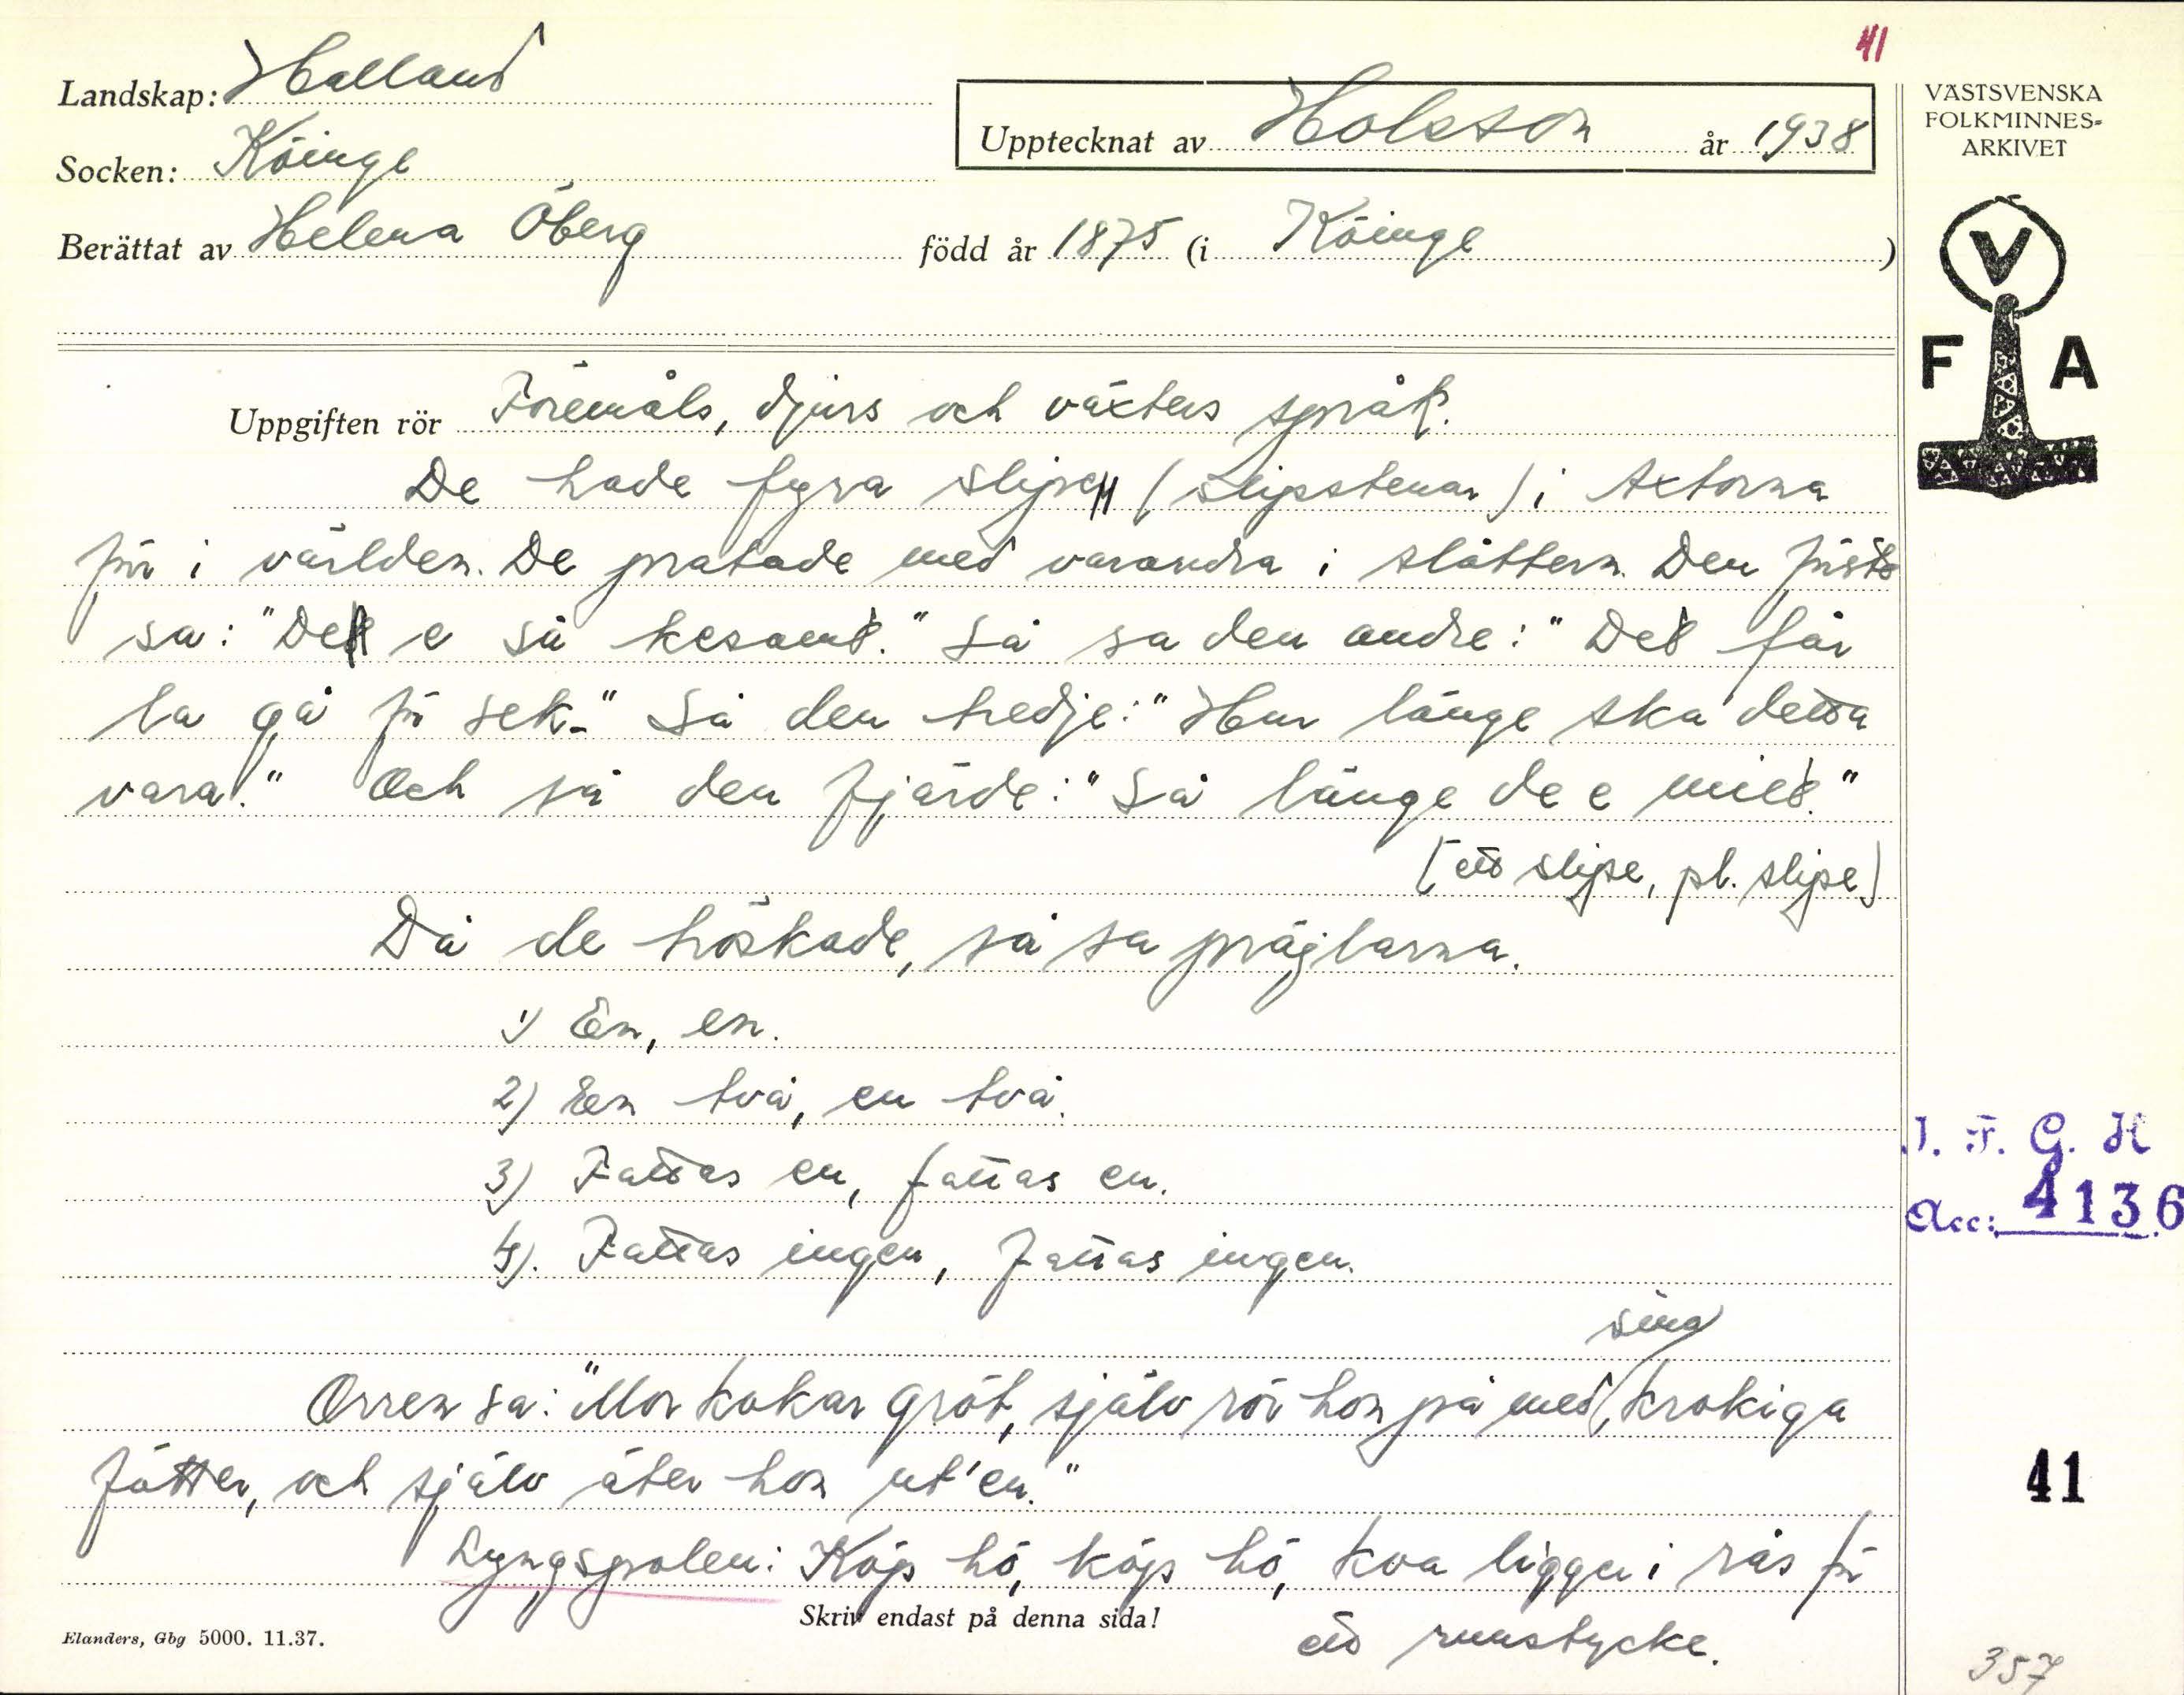 41
Landskap: Halland
Socken: Köinge
Upptecknat av Holsson år 1938
Berättat av Helena Öberg född år 1875 (i Köinge)
VÄSTSVENSKA
FOLKMINNES-
ARKIVET
V
F A
Uppgiften rör Föremåls, djurs och växters språk.
De hade fyra slipe (slipstenar) i Axtorna
för i världen. De pratade med varandra i slåttern. Den förste
sa: "De e så kesamt." Så sa den andre: "Det får
la gå för sek." Så den tredje: "Hur länge ska detta
vara." Och så den fjärde: "Så länge de e mitt."
(ett slipe, pl. slipe)
Då de tröskade, så sa präjlarna.
1) En, en.
2) En två, en två.
3) Fattas en, fattas en.
4). Fattas ingen, fattas ingen.
sina
Orren sa: "Mor kokar gröt, själv rör hon på med krokiga
fötter, och själv äter hon ut'en."
Lyngspolen: Köp hö, köp hö, koa ligger i rås för
ett runstycke.
Skriv endast på denna sida!
Elanders, Gbg 5000. 11.37.
I. F. G. H
Acc: 4136
41
357